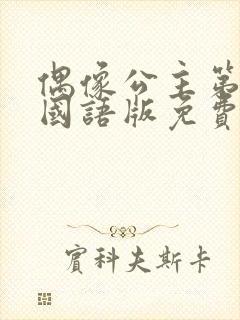 偶像公主第
國語版免費
賓科夫斯卡